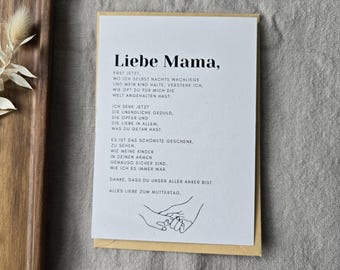 Liebe Mama,
ERST JETZT,
WO ICH SELBST NACHTS WACHLIEGE
UND MEIN KIND HALTE, VERSTEHE ICH,
WIE OFT DU FÜR MICH DIE
WELT ANGEHALTEN HAST.
ICH SEHE JETZT
DIE UNENDLICHE GEDULD,
DIE OPFER UND
DIE LIEBE IN ALLEM,
WAS DU GETAN HAST.
ES IST DAS SCHÖNSTE GESCHENK,
ZU SEHEN,
WIE MEINE KINDER
IN DEINEN ARMEN
GENAUSO SICHER SIND,
WIE ICH ES IMMER WAR.
DANKE, DASS DU UNSER ALLER ANKER BIST.
ALLES LIEBE ZUM MUTTERTAG,